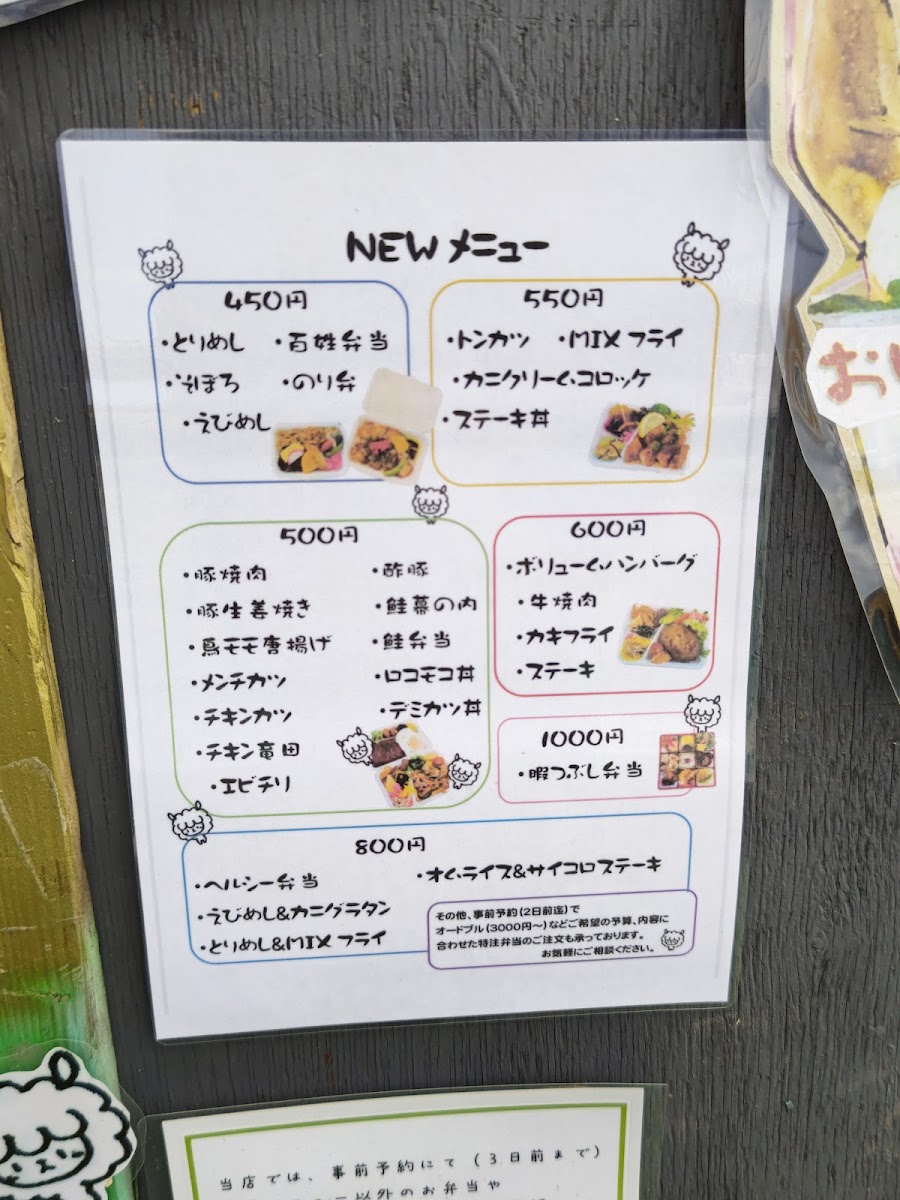 NEW メニュー
450円
・とりめし ・百姓弁当
・そぼろ ・のり弁
・えびめし
550円
・トンカツ ・MIX フライ
・カニクリームコロッケ
・ステーキ丼
500円
・豚焼肉
・豚生姜焼き
・鳥モモ唐揚げ
・メンチカツ
・チキンカツ
・チキン竜田
・エビチリ
・酢豚
・鮭幕の内
・鮭弁当
・ロコモコ丼
・デミカツ丼
600円
・ボリュームハンバーグ
・牛焼肉
・カキフライ
・ステーキ
1000円
・暇つぶし弁当
800円
・ヘルシー弁当
・えびめし&カニグラタン
・とりめし&MIX フライ
・オムライス&サイコロステーキ
その他、事前予約(2日前迄)で
オードブル(3000円〜)などご希望の予算、内容に
合わせた特注弁当のご注文も承っております。
お気軽にご相談ください。
当店では、事前予約にて(3日前まで)
以外のお弁当や